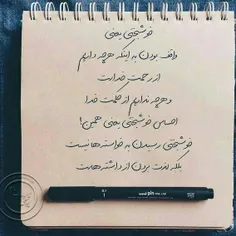 خوشبختی یعنی
واقف بودن به اینکه هرچه داریم
از رحمت خداست
و هرچه نداریم از حکمت خدا
احساس خوشبختی یعنی همین!
خوشبختی رسیدن به خواسته ها نیست
بلکه لذت بردن از داشته هاست
uni pin
0.1